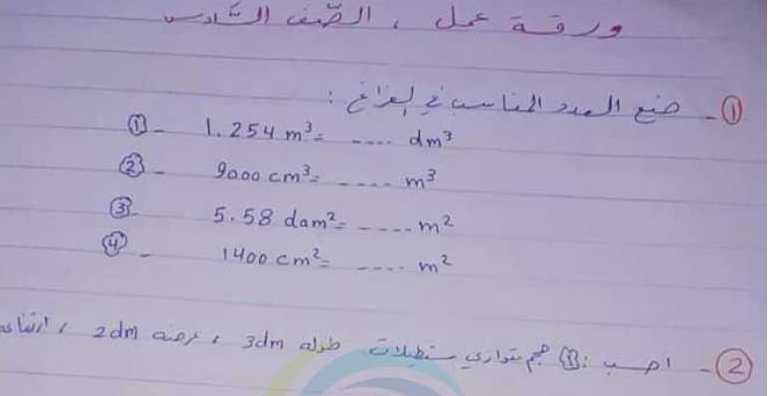 ورقة عمل ، الصّف السّادس
① - ضع العدد المناسب في الفراغ :
① - 1.254 m³ = .... dm³
② - 9000 cm³ = .... m³
③ - 5.58 dam² = .... m²
④ - 1400 cm² = .... m²
② - احسب : ① حجم متوازي مستطيلات طوله 3dm ، عرضه 2dm ،